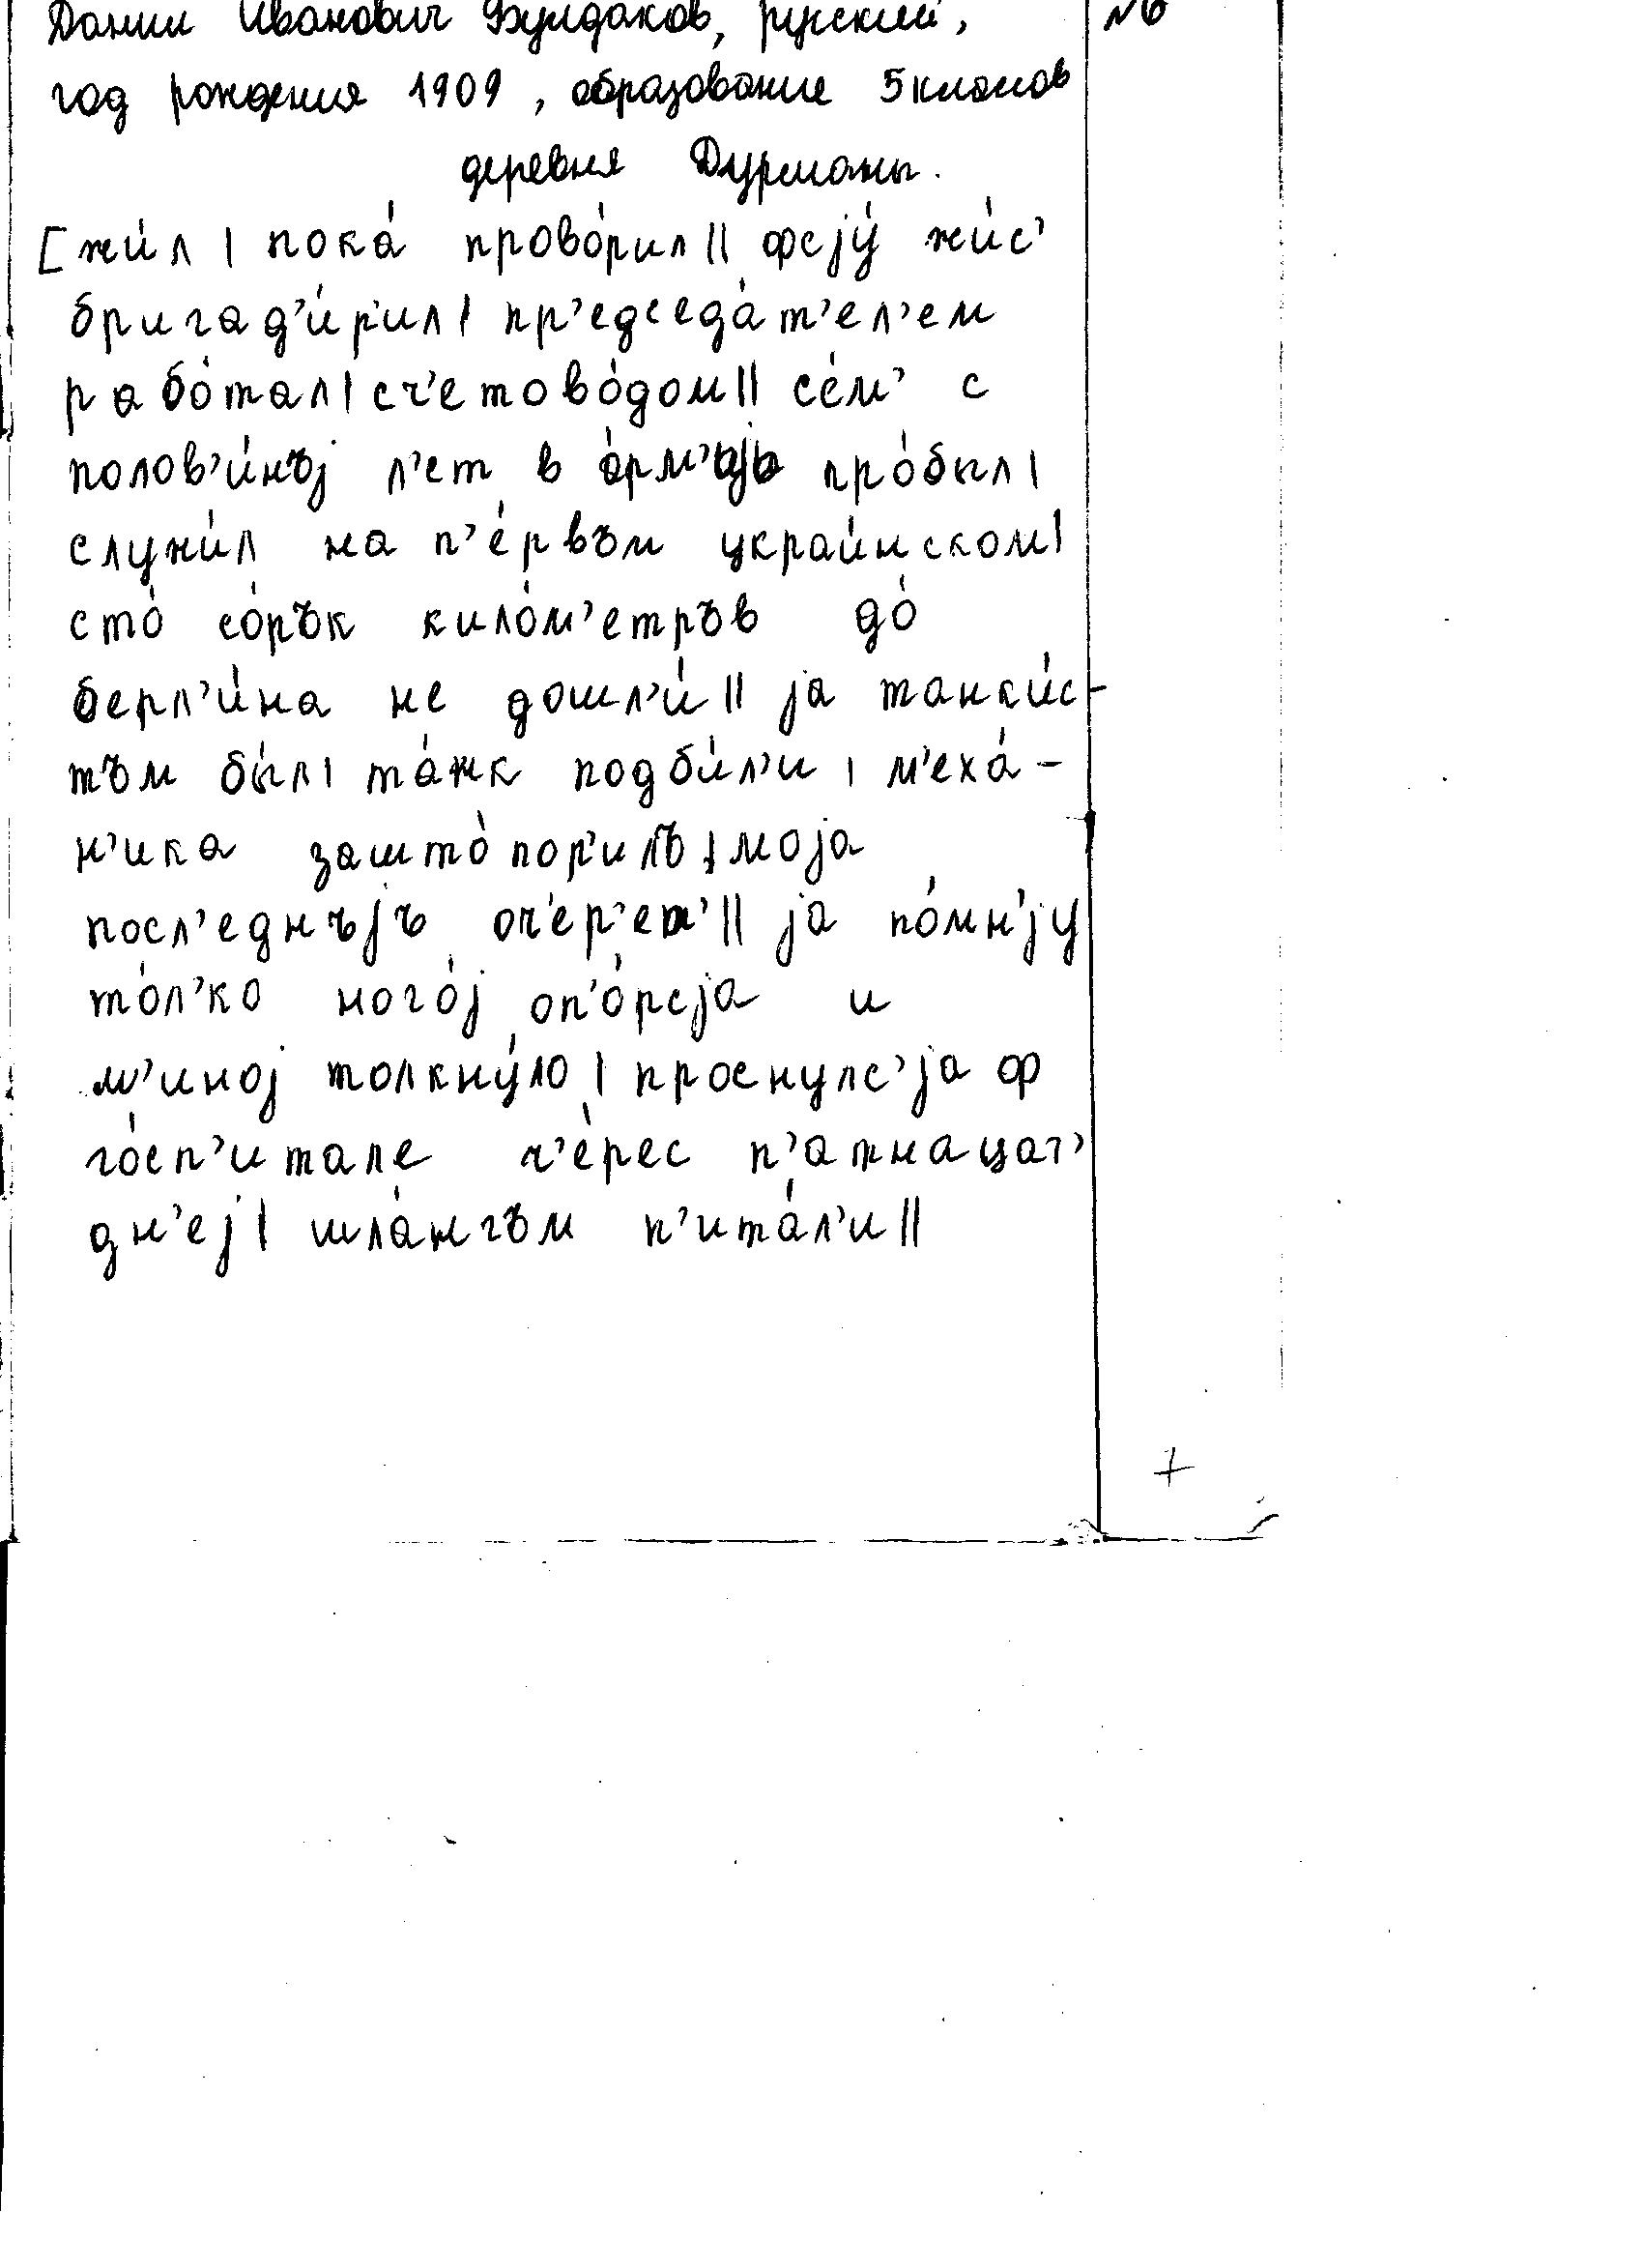 Данил Иванович Булдаков, русский, №6
год рождения 1909, образование 5 классов
деревня Дурманы.
[жи́л | пока́ прово́рил || фсjу́ жи́с’
бригад’и́р’ил | пр’едседа́т’ел’ем
рабо́тал | сч’етово́дом || се́м’ с
полов’и́нъj л’ет в про́был |
служи́л на п’е́рвъм украи́нском |
сто́ со́рък кило́м’етръв до́
берл’и́на не дошл’и́ || jа танки́с-
тъм бы́л | та́нк подби́л’и | м’еха́-
н’ика зашто́пор’илъ | моjа
посл’еднъjъ оч’ер’ет’ || jа по́мн’jу
то́л’ко ного́j оп’о́рсjа и
м’иноj толкну́ло | проснулс’jа ф
го́сп’итале ч’е́рес п’атнацат’
дн’еj | шла́нгъм п’ита́л’и ||